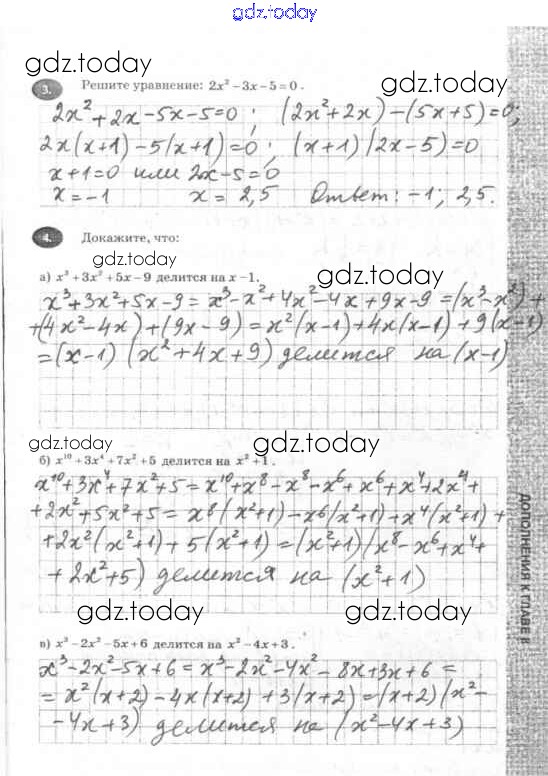 gdz.today
gdz.today
gdz.today
3. Решите уравнение: 2x² − 3x − 5 = 0 .
2x² + 2x − 5x − 5 = 0 ; (2x² + 2x) − (5x + 5) = 0;
2x(x+1) − 5(x+1) = 0; (x+1)(2x−5) = 0
x+1=0 или 2x−5=0
x = −1 x = 2,5 Ответ: −1; 2,5.
4. Докажите, что:
gdz.today
gdz.today
а) x³ + 3x² + 5x − 9 делится на x − 1.
x³+3x²+5x−9 = x³−x²+4x²−4x+9x−9 = (x³−x²)+
+(4x²−4x)+(9x−9) = x²(x−1)+4x(x−1)+9(x−1)
=(x−1)(x²+4x+9) делится на (x−1)
gdz.today
gdz.today
б) x¹⁰ + 3x⁴ + 7x² + 5 делится на x² + 1 .
x¹⁰+3x⁴+7x²+5 = x¹⁰+x⁸−x⁸−x⁶+x⁶+x⁴+2x⁴+
+2x²+5x²+5 = x⁸(x²+1)−x⁶(x²+1)+x⁴(x²+1)+
+2x²(x²+1)+5(x²+1)=(x²+1)(x⁸−x⁶+x⁴+
+2x²+5) делится на (x²+1)
ДОПОЛНЕНИЯ К ГЛАВЕ II
gdz.today
gdz.today
в) x³ − 2x² − 5x + 6 делится на x² − 4x + 3 .
x³−2x²−5x+6 = x³−2x²−4x²−8x+3x+6 =
= x²(x+2)−4x(x+2)+3(x+2)=(x+2)(x²−
−4x+3) делится на (x²−4x+3)